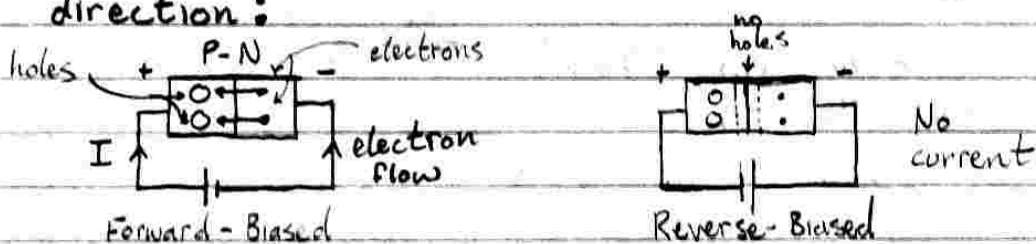 direction:
P-N
electrons
holes
+
-
I
electron
flow
Forward-Biased
no
holes
+
-
No
current
Reverse-Biased